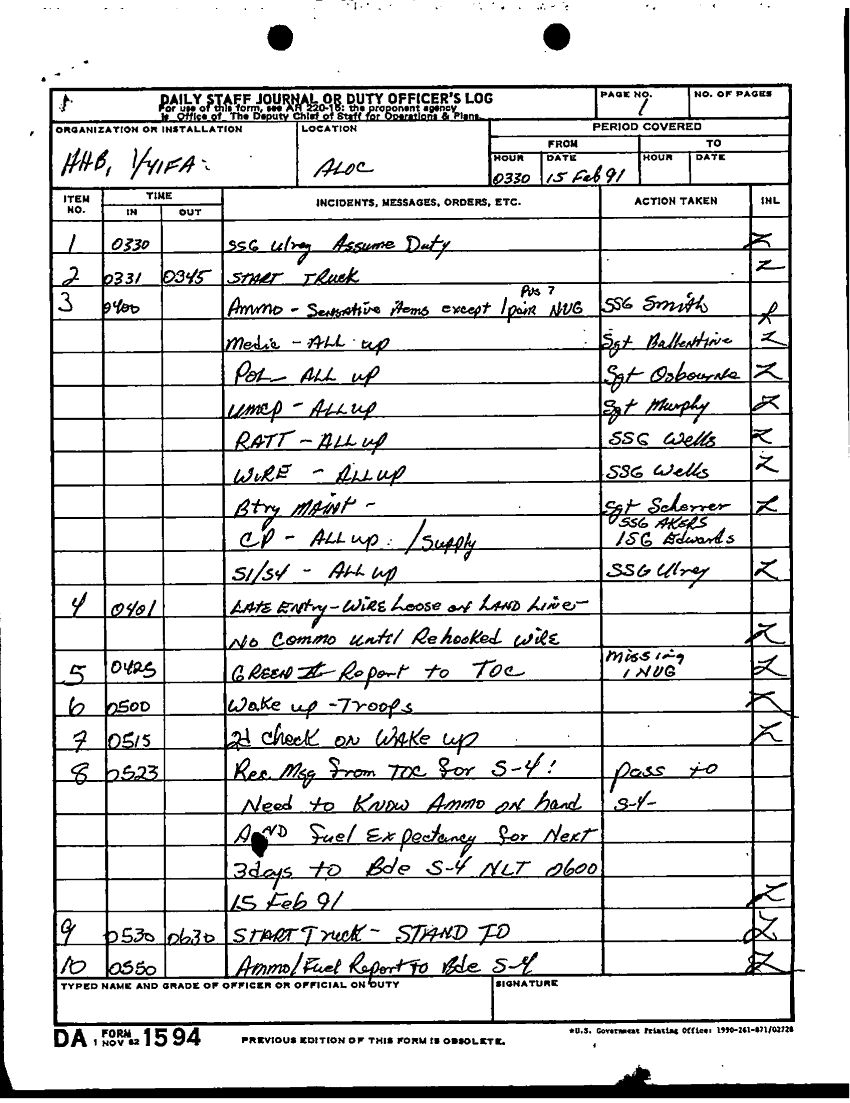 DAILY STAFF JOURNAL OR DUTY OFFICER'S LOG
For use of this form, see AR 220-15: the proponent agency
is Office of The Deputy Chief of Staff for Operations & Plans.
PAGE NO.
1
NO. OF PAGES
ORGANIZATION OR INSTALLATION
HHB, 1/41FA
LOCATION
ALOC
PERIOD COVERED
FROM
TO
HOUR
0330
DATE
15 Feb 91
HOUR
DATE
ITEM NO.
TIME
IN
OUT
INCIDENTS, MESSAGES, ORDERS, ETC.
ACTION TAKEN
INL
1 0330 SSG Ulrey Assume Duty
2 0331 0345 START TRUCK
PVS 7
3 0400 Ammo - Sensative items except 1 pair NUG SSG Smith
Medic - ALL up Sgt Ballentine
POL - ALL up Sgt Osbourne
UMCP - ALL up Sgt Murphy
RATT - ALL up SSG Wells
WIRE - ALL up SSG Wells
Btry MAINT - Sgt Scherrer
SSG AKERS
CP - ALL up : /Supply 1SG Edwards
S1/S4 - ALL up SSG Ulrey
4 0401 LATE Entry - WIRE Loose on LAND Line -
No Commo until Rehooked WIRE
5 0425 GREEN II Report to TOC Missing
1 NUG
6 0500 Wake up - Troops
7 0515 2d check on WAKE up
8 0523 Rec. Msg From TOC for S-4! pass to
Need to KNOW Ammo on hand S-4-
AND Fuel Expectancy for Next
3 days to Bde S-4 NLT 0600
15 Feb 91
9 0530 0630 START Truck - STAND TO
10 0550 Ammo/Fuel Report to Bde S-4
TYPED NAME AND GRADE OF OFFICER OR OFFICIAL ON DUTY
SIGNATURE
DA FORM 1 NOV 62 1594
PREVIOUS EDITION OF THIS FORM IS OBSOLETE.
*U.S. Government Printing Office: 1990-261-871/02728